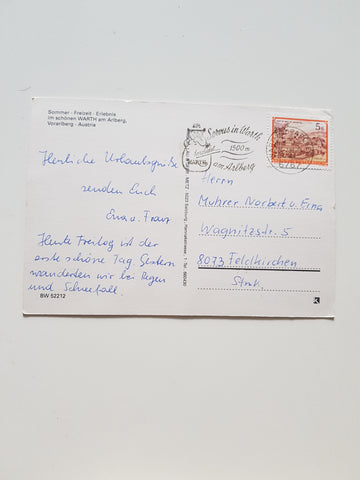 Sommer - Freizeit - Erlebnis
im schönen WARTH am Arlberg,
Vorarlberg - Austria
Herzliche Urlaubsgrüße
senden Euch
Erna u. Franz
Heute Freitag ist der
erste schöne Tag. Gestern
wanderten wir bei Regen
und Schneefall.
BW 52212
Servus in Warth
1500 m
am Arlberg
6767
5 S
Herrn
Muhrer Norbert u. Erna
Wagnitzstr. 5
8073 Feldkirchen
Stmk.